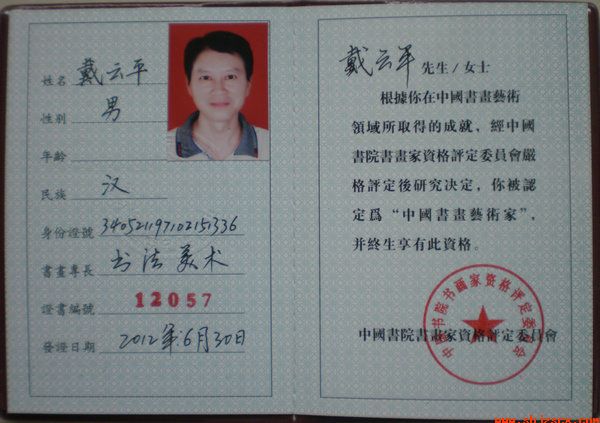 姓名 戴云平
性别 男
年龄
民族 汉
身份證號 340521197102151336
書畫專長 书法 美术
證書编號 12057
發證日期 2012年6月30日
戴云平 先生/女士
根據你在中國書畫藝術
領域所取得的成就，經中國
書院書畫家資格評定委員會嚴
格評定後研究决定，你被認
定爲“中國書畫藝術家”，
并終生享有此資格。
中國書院書畫家資格評定委員會
中国书院书画家资格评定委员会